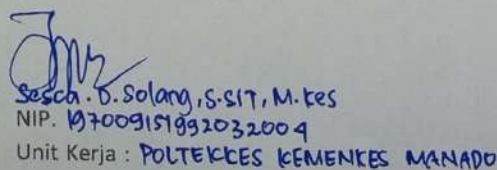 Sesca. D. Solang, S.SiT, M.kes
NIP. 197009151992032004
Unit Kerja : POLTEKKES KEMENKES MANADO